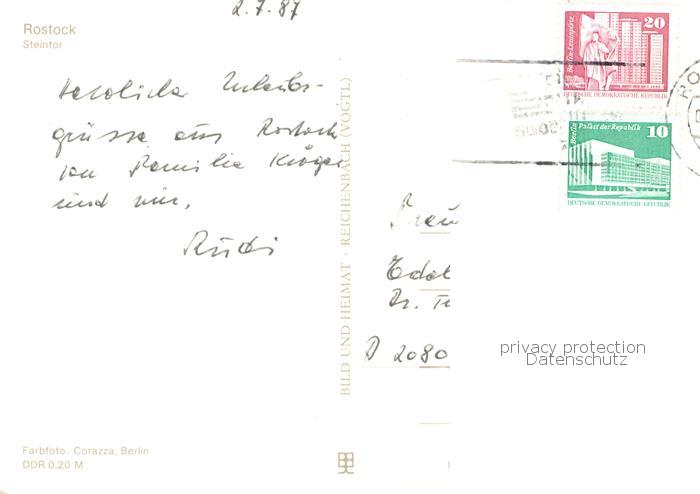 2.7.87
Rostock
Steintor
Herzliche Urlaubs-
grüsse aus Rostock
von Familie Kröger
und mir,
Rudi
BILD UND HEIMAT · REICHENBACH (VOGTL)
Farbfoto: Corazza, Berlin
DDR 0,20 M
20
Berlin-Leninplatz
DEUTSCHE DEMOKRATISCHE REPUBLIK
10
Berlin Palast der Republik
DEUTSCHE DEMOKRATISCHE REPUBLIK
RO
Frau
D 2080
privacy protection
Datenschutz